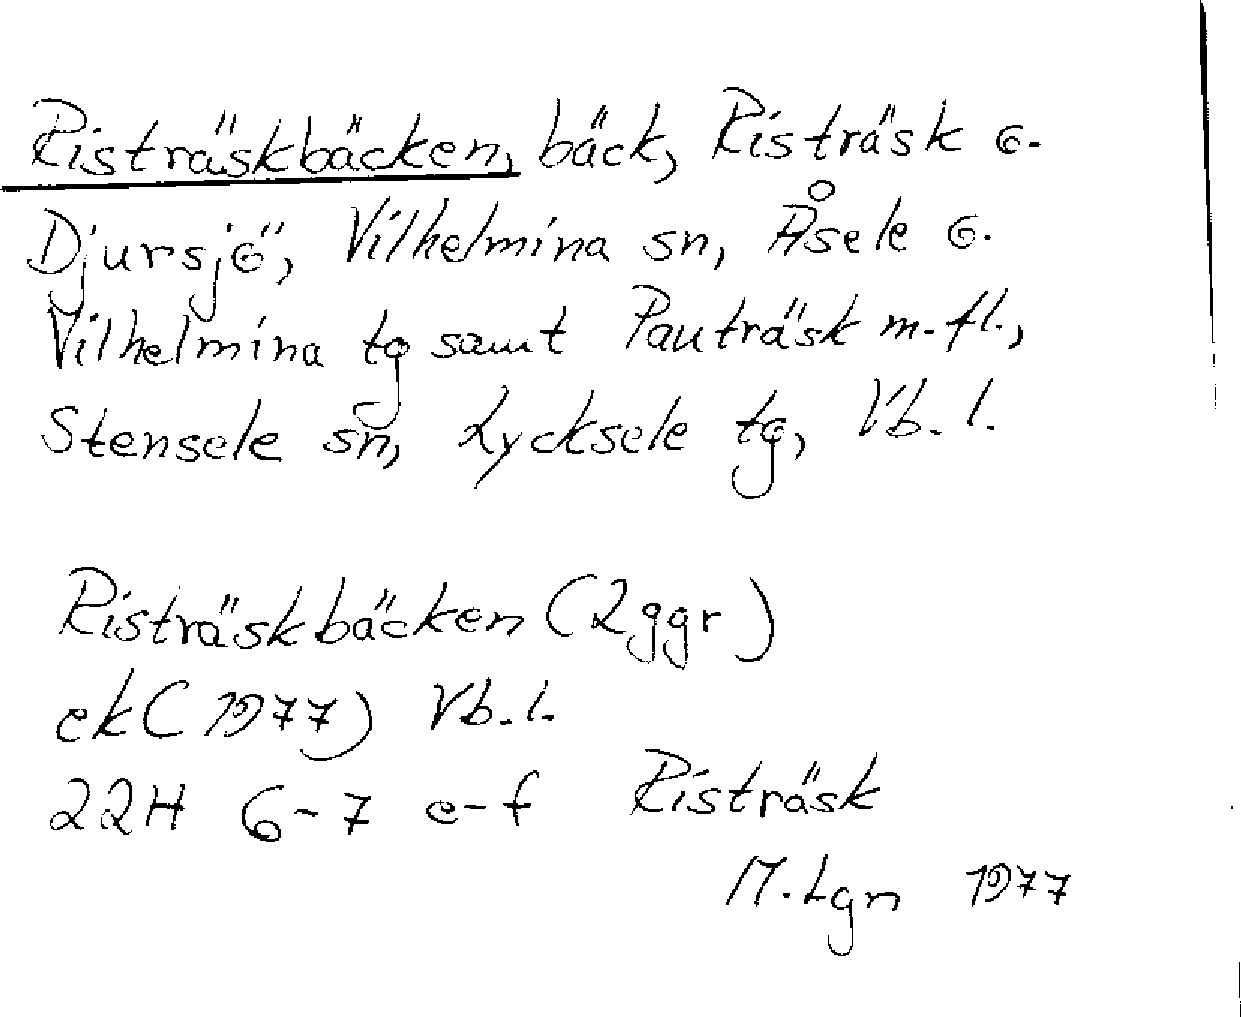 Risträskbäcken, bäck, Risträsk o.
Djursjö, Vilhelmina sn, Åsele o.
Vilhelmina tg samt Pauträsk m.fl.,
Stensele sn, Lycksele tg, Vb. l.
Risträskbäcken (2ggr)
ek (1977) Vb. l.
22H 6-7 e-f Risträsk
M. Lgn 1977